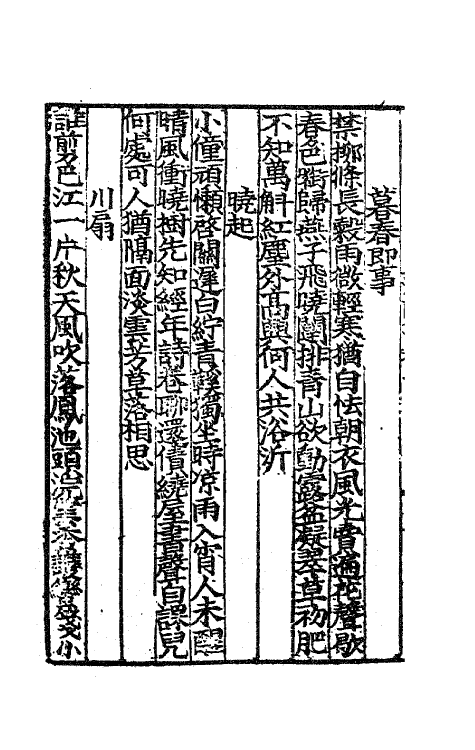 暮春即事
禁柳條長穀雨微輕寒猶自怯朝衣風光賣遍花聲歇
春色銜歸燕子飛曉闥排青山欲動露盆凝翠草初肥
不知萬斛紅塵外髙興何人共浴沂
曉起
小僮頑懶啓關遲白紵青鞵獨坐時凉雨入宵人未醒
晴風衝曉樹先知經年詩卷聊還債繞屋書聲自課兒
何處可人猶隔面淡雲芳草落相思
川扇
誰剪巴江一片秋天風吹落鳳池頭